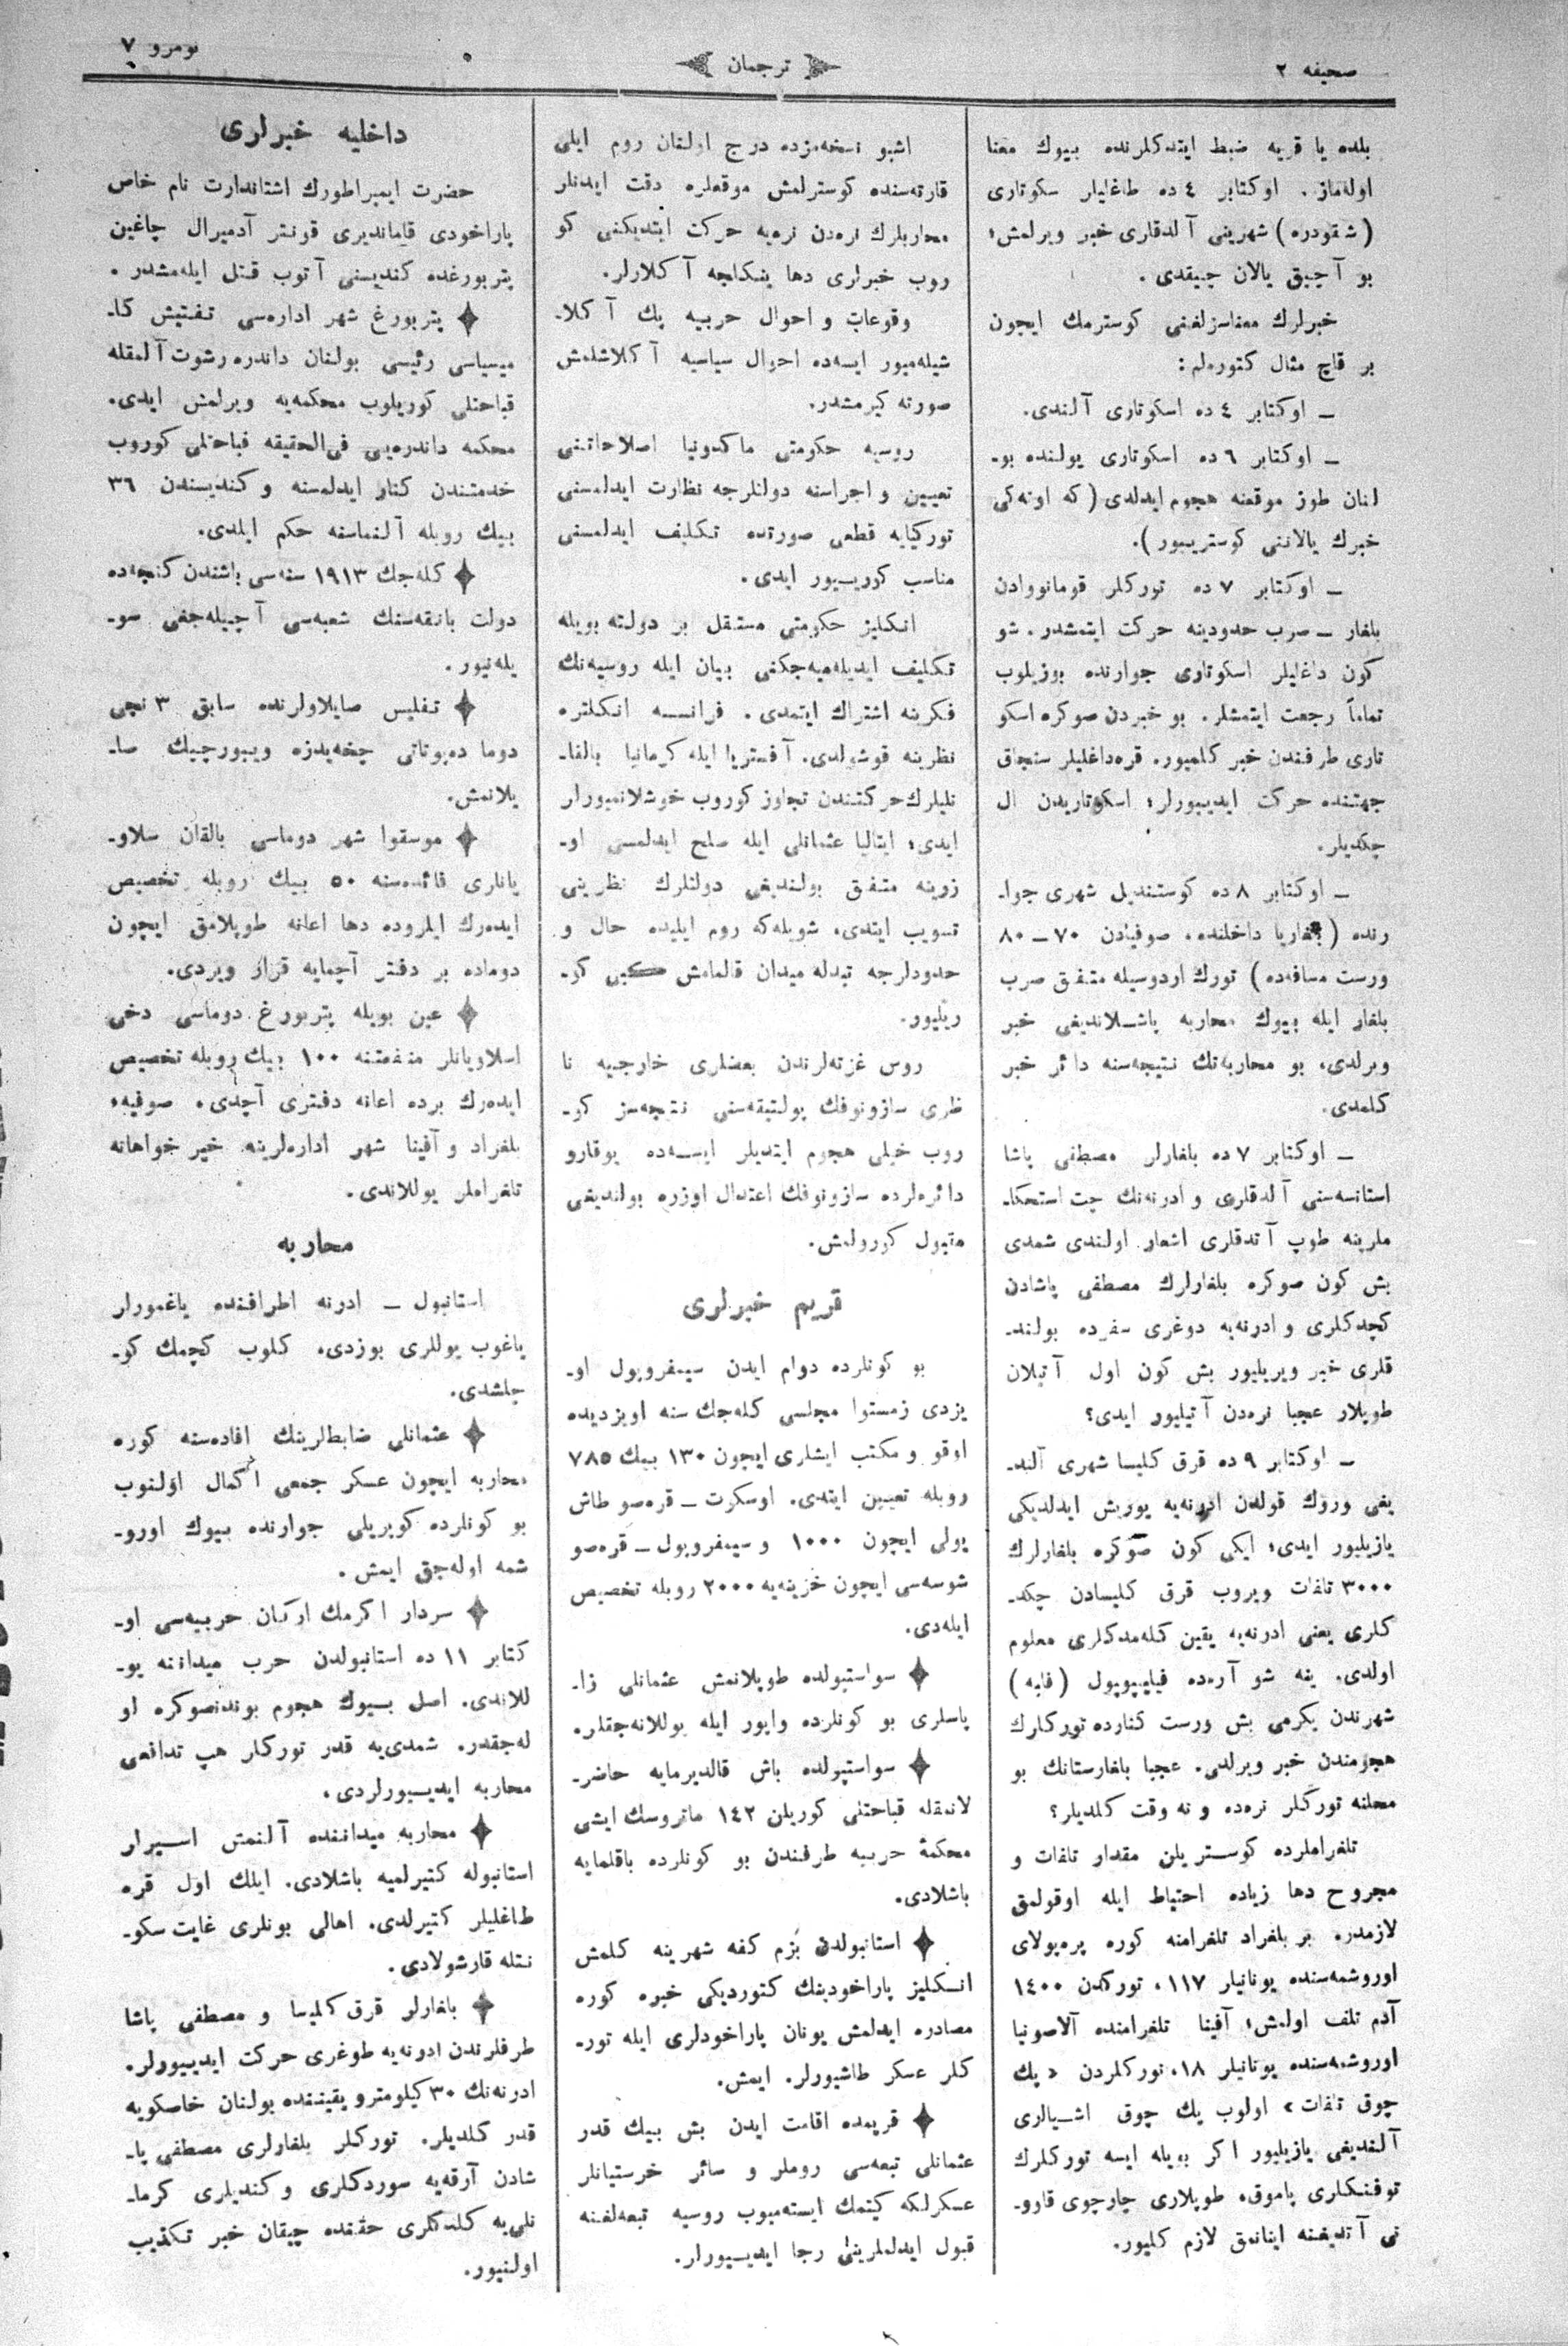 صحیفه ۲
ترجمان
نومرو ۷
بلده یا قریه ضبط ایتدکلرنده بیوك معنا
اوله‌ماز. اوکتابر ٤ ده طاغلیلر سکوتاری
(شقودره) شهرینی آلدقاری خبر ویرلمش؛
بو آچیق یالان چیقدی.
خبرلرك معناسزلغنی کوسترمك ایچون
بر قاچ مثال کتوره‌لم:
— اوکتابر ٤ ده اسکوتاری آلندی.
— اوکتابر ٦ ده اسکوتاری یولنده بو-
لنان طوز موقعنه هجوم ایدلدی (که اوته‌کی
خبرك یالاننی کوستریبور).
— اوکتابر ۷ ده تورکلر قومانووادن
بلغار — صرب حدودینه حرکت ایتمشدر. شو
کون داغلیلر اسکوتاری جوارنده بوزیلوب
تماماً رجعت ایتمشلر. بو خبردن صوکره اسکو
تاری طرفندن خبر کلمیور. قره‌داغلیلر سنجاق
جهتنده حرکت ایدیبورلر؛ اسکوتاریدن ال
چکدیلر.
— اوکتابر ۸ ده کوستندیل شهری جوا-
رنده (بلغاریا داخلنده، صوفیادن ۷۰—۸۰
ورست مسافه‌ده) تورك اردوسیله متفق صرب
بلغار ایله بیوك محاربه باشلاندیغی خبر
ویرلدی، بو محاربه‌نك نتیجه‌سنه دائر خبر
کلمدی.
— اوکتابر ۷ ده بلغارلر مصطفی پاشا
استانسه‌سنی آلدقلری و ادرنه‌نك چت استحکا-
ملرینه طوپ آتدقلری اشعار اولندی شمدی
بش کون صوکره بلغارلرك مصطفی پاشادن
کچدکلری و ادرنه‌یه دوغری سفرده بولند-
قلری خبر ویریلیور بش کون اول آتیلان
طوپلار عجبا نره‌دن آتیلیور ایدی؟
— اوکتابر ۹ ده قرق کلیسا شهری آلند-
یغی وروك قولدن ادرنه‌یه یوریش ایدلدیکی
یازیلیور ایدی؛ ایکی کون صوکره بلغارلرك
۳۰۰۰ تلفات ویروب قرق کلیسادن چکد-
کلری یعنی ادرنه‌یه یقین کله‌مدکلری معلوم
اولدی. ینه شو آره‌ده فیلیپوپول (فلبه)
شهرندن یکرمی بش ورست کنارده تورکلرك
هجومندن خبر ویرلدی. عجبا بلغارستانك بو
محلنه تورکلر نره‌ده و نه وقت کلدیلر؟
تلغراملرده کوستریلن مقدار تلفات و
مجروح دها زیاده احتیاط ایله اوقولمق
لازمدر. بر بلغراد تلغرامنه کوره پره‌پولای
اوروشمه‌سنده یونانیلر ۱۱۷، تورکدن ۱٤۰۰
آدم تلف اولمش؛ آفینا تلغرامنده آلاصونیا
اوروشمه‌سنده یونانیلر ۱۸، تورکلردن «پك
چوق تلفات» اولوب پك چوق اشیالری
آلندیغی یازیلیور اکر بویله ایسه تورکلرك
توفنکلری پاموق، طوپلاری چارچوی قارو-
نی آتدیغنه اینانمق لازم کلیور.
اشبو نسخه‌مزده درج اولنان روم ایلی
قارته‌سنده کوسترلمش موقعلره دقت ایدنلر
محاربلرك نره‌دن نره‌یه حرکت ایتدیکنی کو
روب خبرلری دها ینکلجه آکلارلر.
وقوعات و احوال حربیه پك آکلا-
شیله‌میور ایسه‌ده احوال سیاسیه آکلاشلمش
صورته کیرمشدر.
روسیه حکومتی ماکدونیا اصلاحاتنی
تعیین و اجراسنه دولتلرجه نظارت ایدلمسنی
تورکیایه قطعی صورتده تکلیف ایدلمسنی
مناسب کوریبور ایدی.
انکلیز حکومتی مستقل بر دولته بویله
تکلیف ایدیله‌میه‌جکنی بیان ایله روسیه‌نك
فکرینه اشتراك ایتمدی. فرانسه انکلتره
نظرینه قوشولدی. آفستریا ایله کرمانیا بالقا-
نلیلرك حرکتندن تجاوز کوروب خوشلانمیورلر
ایدی؛ ایتالیا عثمانلی ایله صلح ایدلمسی او-
زرینه متفق بولندیغی دولتلرك نظرینی
تسویب ایتدی، شویله‌که روم ایلیده حال و
حدودلرجه تبدله میدان قالمامش کبی کو-
ریلیور.
روس غزته‌لرندن بعضلری خارجیه نا
ظری سازونوفك پولتیقه‌سنی نتیجه‌سز کو-
روب خیلی هجوم ایتدیلر ایسه‌ده یوقارو
دائره‌لرده سازونوفك اعتدال اوزره بولندیغی
مقبول کورولمش.
قریم خبرلری
بو کونلرده دوام ایدن سیمفروپول او-
یزدی زمستوا مجلسی کله‌جك سنه اویزدیده
اوقو و مکتب ایشلری ایچون ۱۳۰ بیك ۷۸٥
روبله تعیین ایتدی. اوسکرت — قره‌صو طاش
یولی ایچون ۱۰۰۰ و سیمفروپول — قره‌صو
شوسه‌سی ایچون خزینه‌یه ۲۰۰۰ روبله تخصیص
ایله‌دی.
سواستپولده طوپلانمش عثمانلی زا-
پاسلری بو کونلرده واپور ایله یوللانه‌جقلر.
سواستپولده باش قالدیرمایه حاضر-
لانمقله قباحتلی کوریلن ۱٤۲ ماتروسك ایشی
محکمهٔ حربیه طرفندن بو کونلرده باقلمایه
باشلادی.
استانبولدن بزم کفه شهرینه کلمش
انکلیز پاراخودینك کتوردیکی خبره کوره
مصادره ایدلمش یونان پاراخودلری ایله تور-
کلر عسکر طاشیورلر. ایمش.
قریمده اقامت ایدن بش بیك قدر
عثمانلی تبعه‌سی روملر و سائر خرستیانلر
عسکرلکه کیتمك ایسته‌میوب روسیه تبعه‌لغنه
قبول ایدلملرینی رجا ایدیبورلر.
داخلیه خبرلری
حضرت ایمپراطورك اشتاندارت نام خاص
پاراخودی قاماندیری قونتر آدمیرال چاغین
پتربورغده کندیسنی آتوب قتل ایله‌مشدر.
پتربورغ شهر اداره‌سی تفتیش کا-
میسیاسی رئیسی بولنان داندره رشوت آلمقله
قباحتلی کوریلوب محکمه‌یه ویرلمش ایدی.
محکمه داندره‌یی فی‌الحقیقه قباحتلی کوروب
خدمتندن کنار ایدلمسنه و کندیسندن ۳٦
بیك روبله آلنماسنه حکم ایلدی.
کله‌جك ۱۹۱۳ سنه‌سی باشندن کنجه‌ده
دولت بانقه‌سنك شعبه‌سی آچیله‌جغی سو-
یله‌نیور.
تفلیس صایلاولرنده سابق ۳ نجی
دوما ده‌پوتاتی چخه‌یدزه ویبورچیك صا-
یلانمش.
موسقوا شهر دوماسی بالقان سلاو-
یانلری فائده‌سنه ٥۰ بیك روبله تخصیص
ایده‌رك ایلروده دها اعانه طوپلامق ایچون
دوماده بر دفتر آچمایه قرار ویردی.
عین بویله پتربورغ دوماسی دخی
اسلاویانلر منفعتنه ۱۰۰ بیك روبله تخصیص
ایده‌رك برده اعانه دفتری آچدی. صوفیه،
بلغراد و آفینا شهر اداره‌لرینه خیر خواهانه
تلغراملر یوللاندی.
محاربه
استانبول — ادرنه اطرافنده یاغمورلر
یاغوب یوللری بوزدی. کلوب کچمك کو-
جلشدی.
عثمانلی ضابطلرینك افاده‌سنه کوره
محاربه ایچون عسکر جمعی اکمال اولنوب
بو کونلرده کوپریلی جوارنده بیوك اورو-
شمه اوله‌جق ایمش.
سردار اکرمك ارکان حربیه‌سی او-
کتابر ۱۱ ده استانبولدن حرب میداننه یو-
للاندی. اصل بیوك هجوم بوندنصوکره او
له‌جقدر. شمدی‌یه قدر تورکلر هپ تدافعی
محاربه ایدیبورلردی.
محاربه میداننده آلنمش اسیرلر
استانبوله کتیرلمیه باشلادی. ایلك اول قره
طاغلیلر کتیرلدی. اهالی بونلری غایت سکو-
نتله قارشولادی.
بلغارلر قرق کلیسا و مصطفی پاشا
طرفلرندن ادرنه‌یه طوغری حرکت ایدیبورلر.
ادرنه‌نك ۳۰ کیلومترو یقیننده بولنان خاصکویه
قدر کلدیلر. تورکلر بلغارلری مصطفی پا-
شادن آرقه‌یه سوردکلری و کندیلری کرما-
نلی‌یه کلدکلری حقنده چیقان خبر تکذیب
اولنیور.